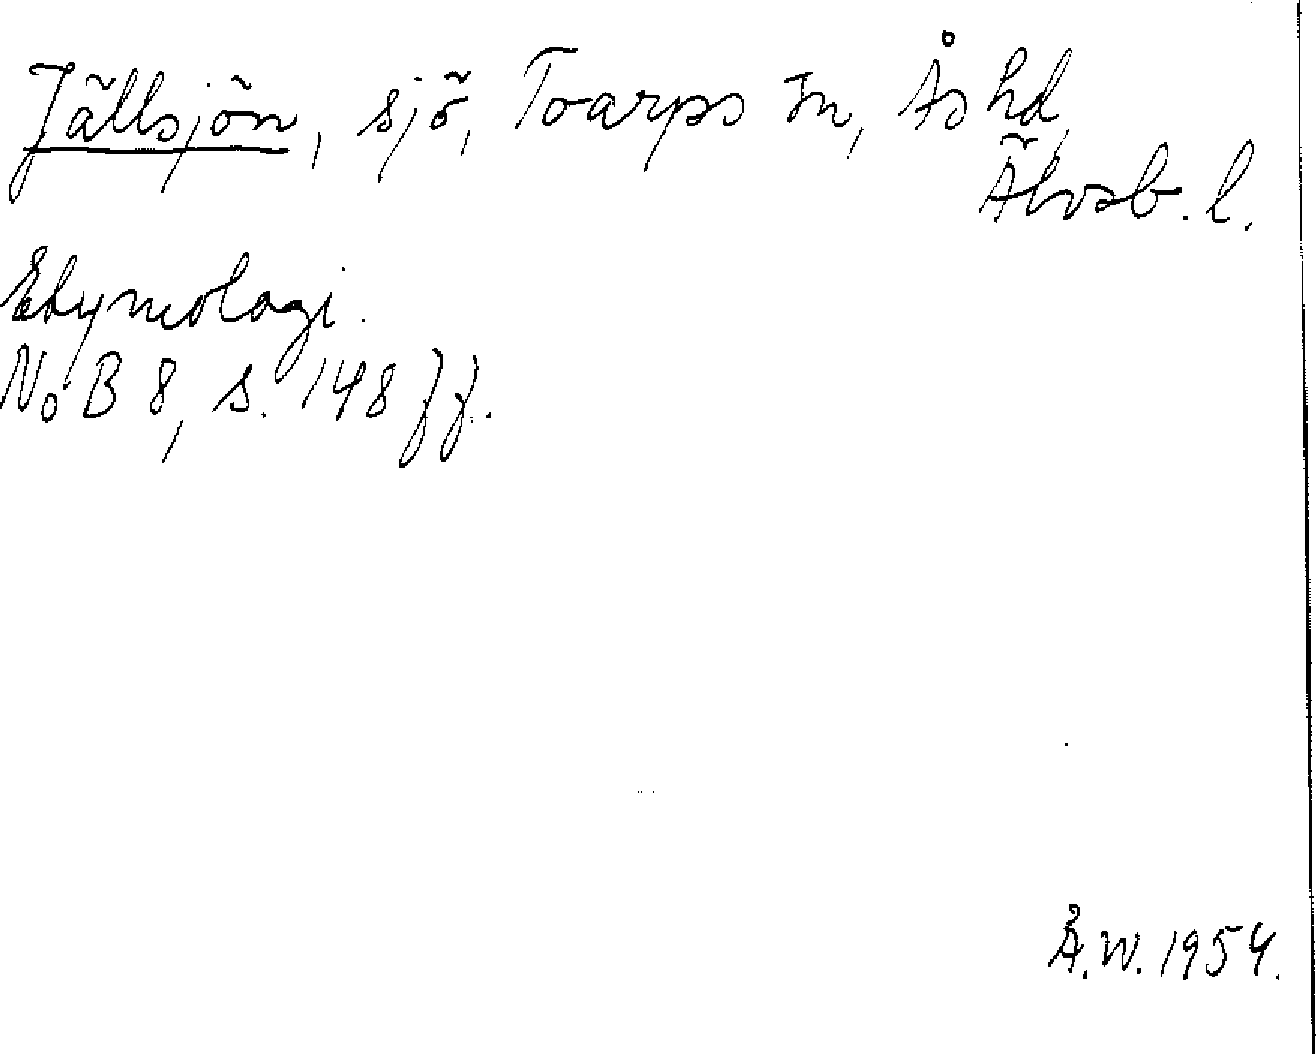 Jällsjön, sjö, Toarps sn, Ås hd,
Älvsb. l.
Etymologi.
NoB 8, s. 148 ff.
Å.W. 1954.